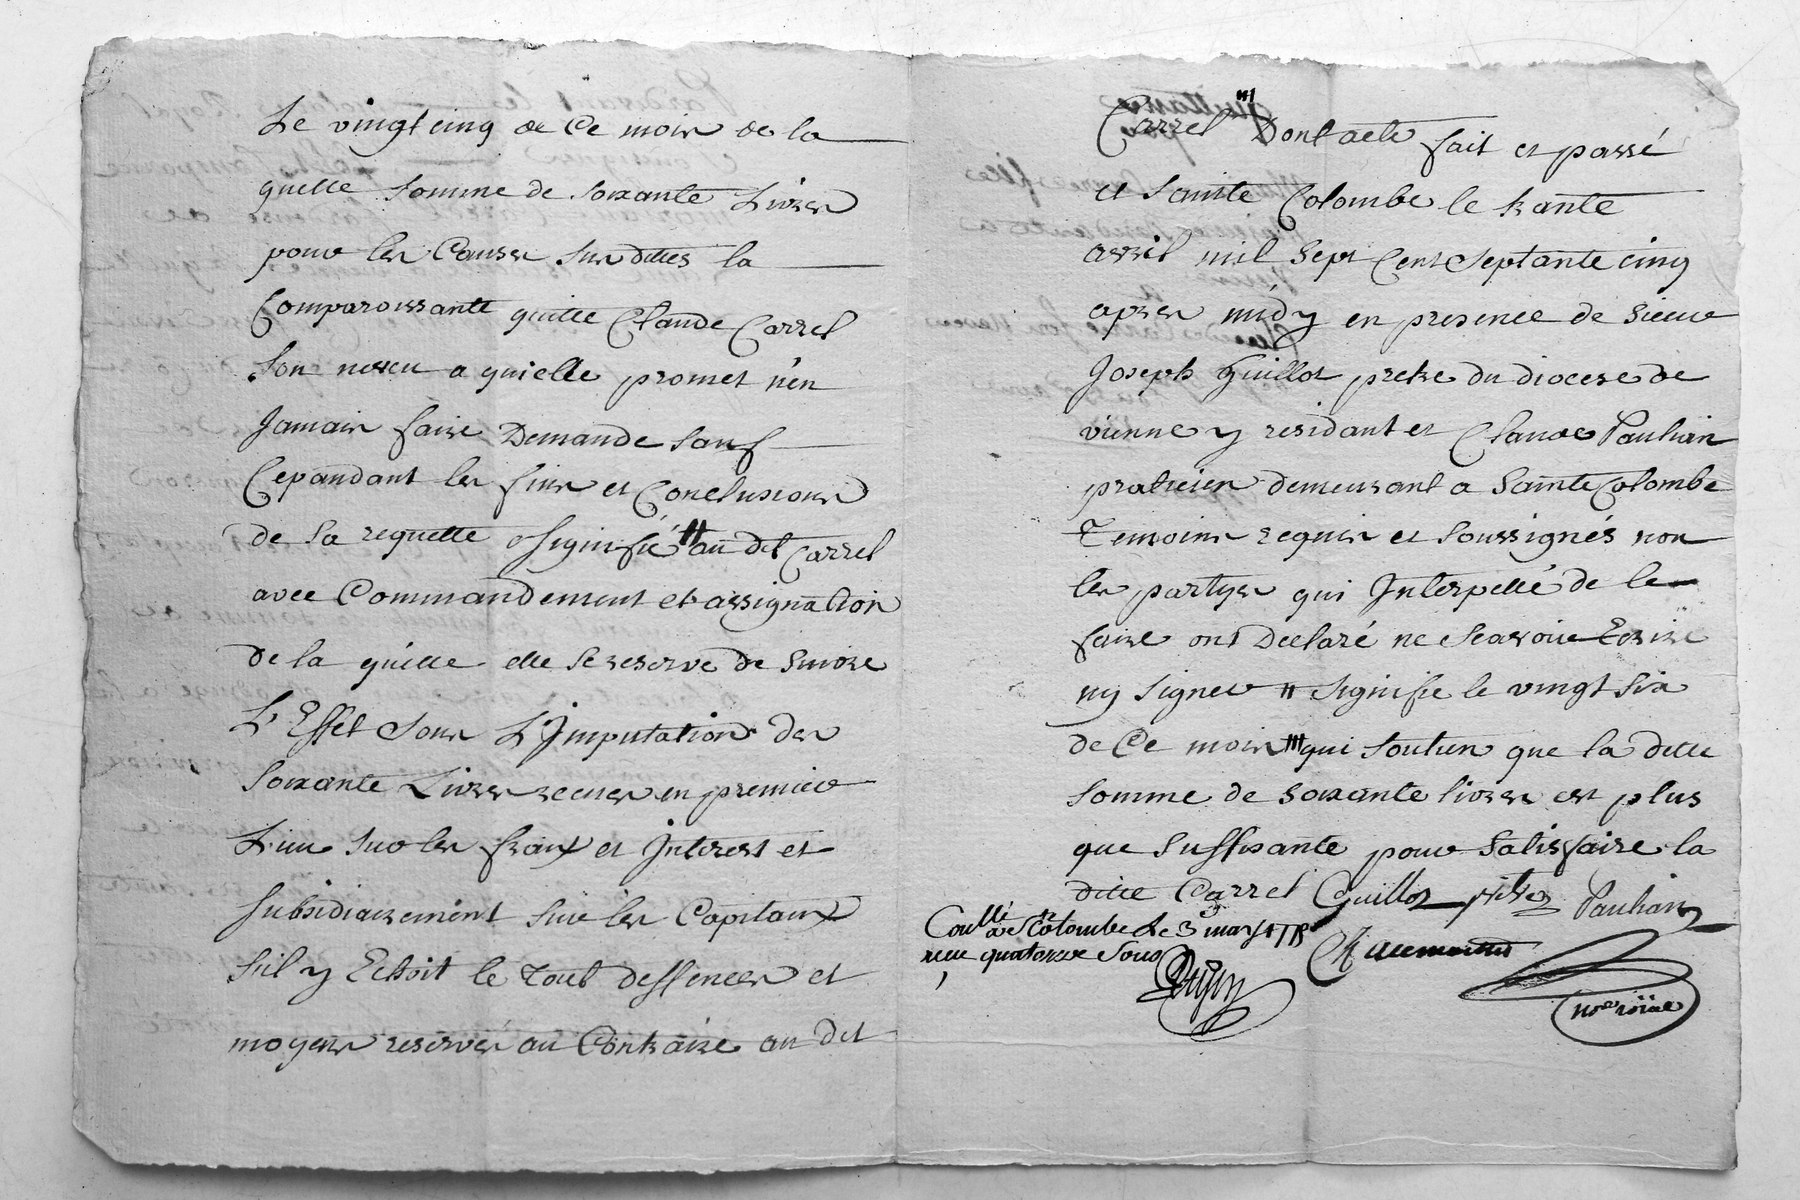 Le vingt cinq de Ce mois de la
quelle somme de soixante Livres
pour les Causes sus dittes la
Comparoissante quitte Claude Carrel
son neveu a qui elle promet n'en
Jamais faire Demande sauf
Cepandant les fins et Conclusions
de sa requette signifié # au dit Carrel
avec Commandement et assignation
de la quelle elle se reserve de suivre
L'Effet sous L'Imputation des
soixante Livres recues en premier
Lieu sur les fraix et Interest et
subsidiairement sur les Capitaux
s'il y Echoit le tout deffences et
moyens reservés au Contraire au dit
Carrel Dont acte fait et passé
et Sainte Colombe le trante
avril mil sept Cent septante cinq
apres midy en presence de sieur
Joseph Guillot pretre du diocese de
vienne y residant et Claude Paulian
praticien demeurant a Sainte Colombe
Temoins requis et soussignés non
les partyes qui Interpellé de le
faire ont Declaré ne scavoir Ecrire
ny signer # signifie le vingt six
de Ce mois # qui soutien que la ditte
somme de soixante livres est plus
que suffisante pour satisfaire la
ditte Carrel Guillot ptre Paulian
Conllé a Ste Colombe Le 3 may 1775
recu quatorze sous
nore roial